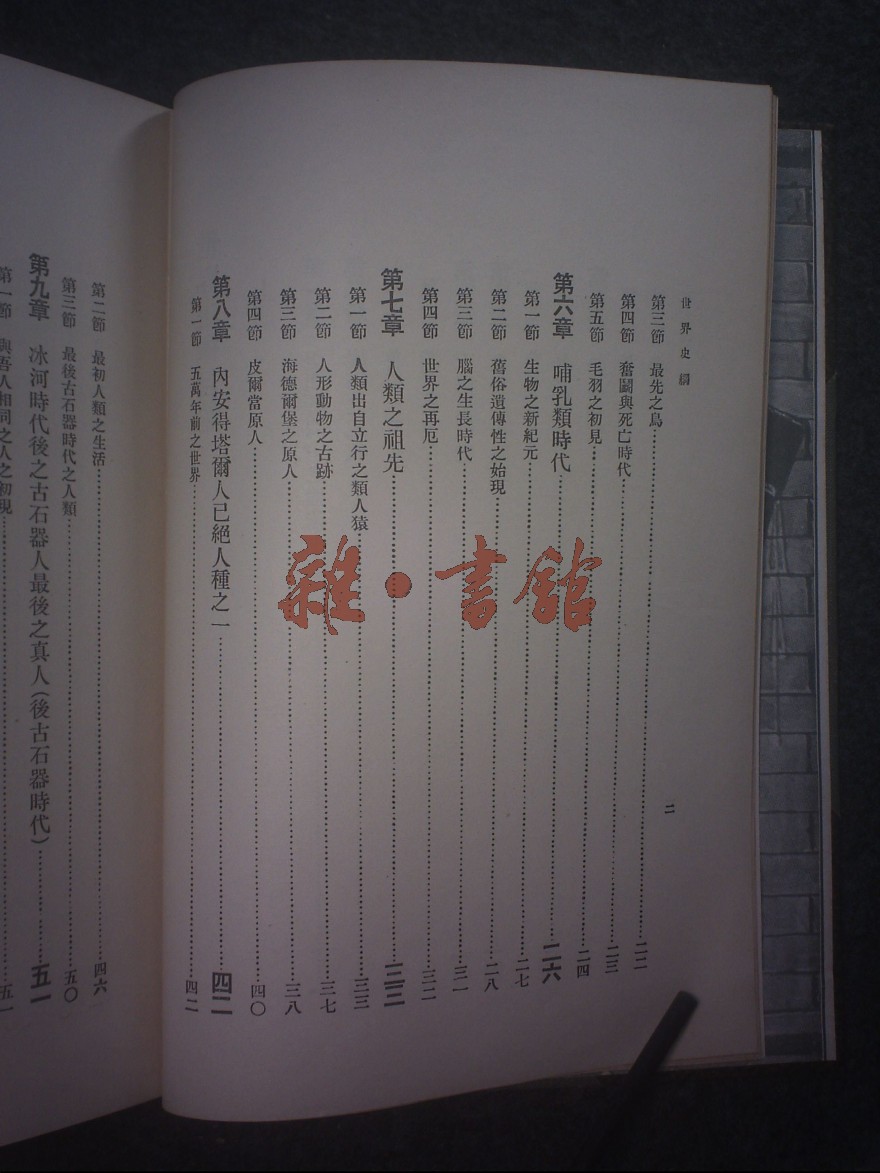 世界史綱
二
第三節 最先之鳥 二二
第四節 奮鬭與死亡時代 二三
第五節 毛羽之初見 二四
第六章 哺乳類時代 二六
第一節 生物之新紀元 二七
第二節 舊俗遺傳性之始現 二八
第三節 腦之生長時代 三一
第四節 世界之再厄 三二
第七章 人類之祖先 三三
第一節 人類出自立行之類人猿 三三
第二節 人形動物之古跡 三七
第三節 海德爾堡之原人 三八
第四節 皮爾當原人 四〇
第八章 內安得塔爾人已絕人種之一 四二
第一節 五萬年前之世界 四二
第二節 最初人類之生活 四六
第三節 最後古石器時代之人類 五〇
第九章 冰河時代後之古石器人最後之真人(後古石器時代) 五一
第一節 與吾人相同之人之初現 五一
雜·書館